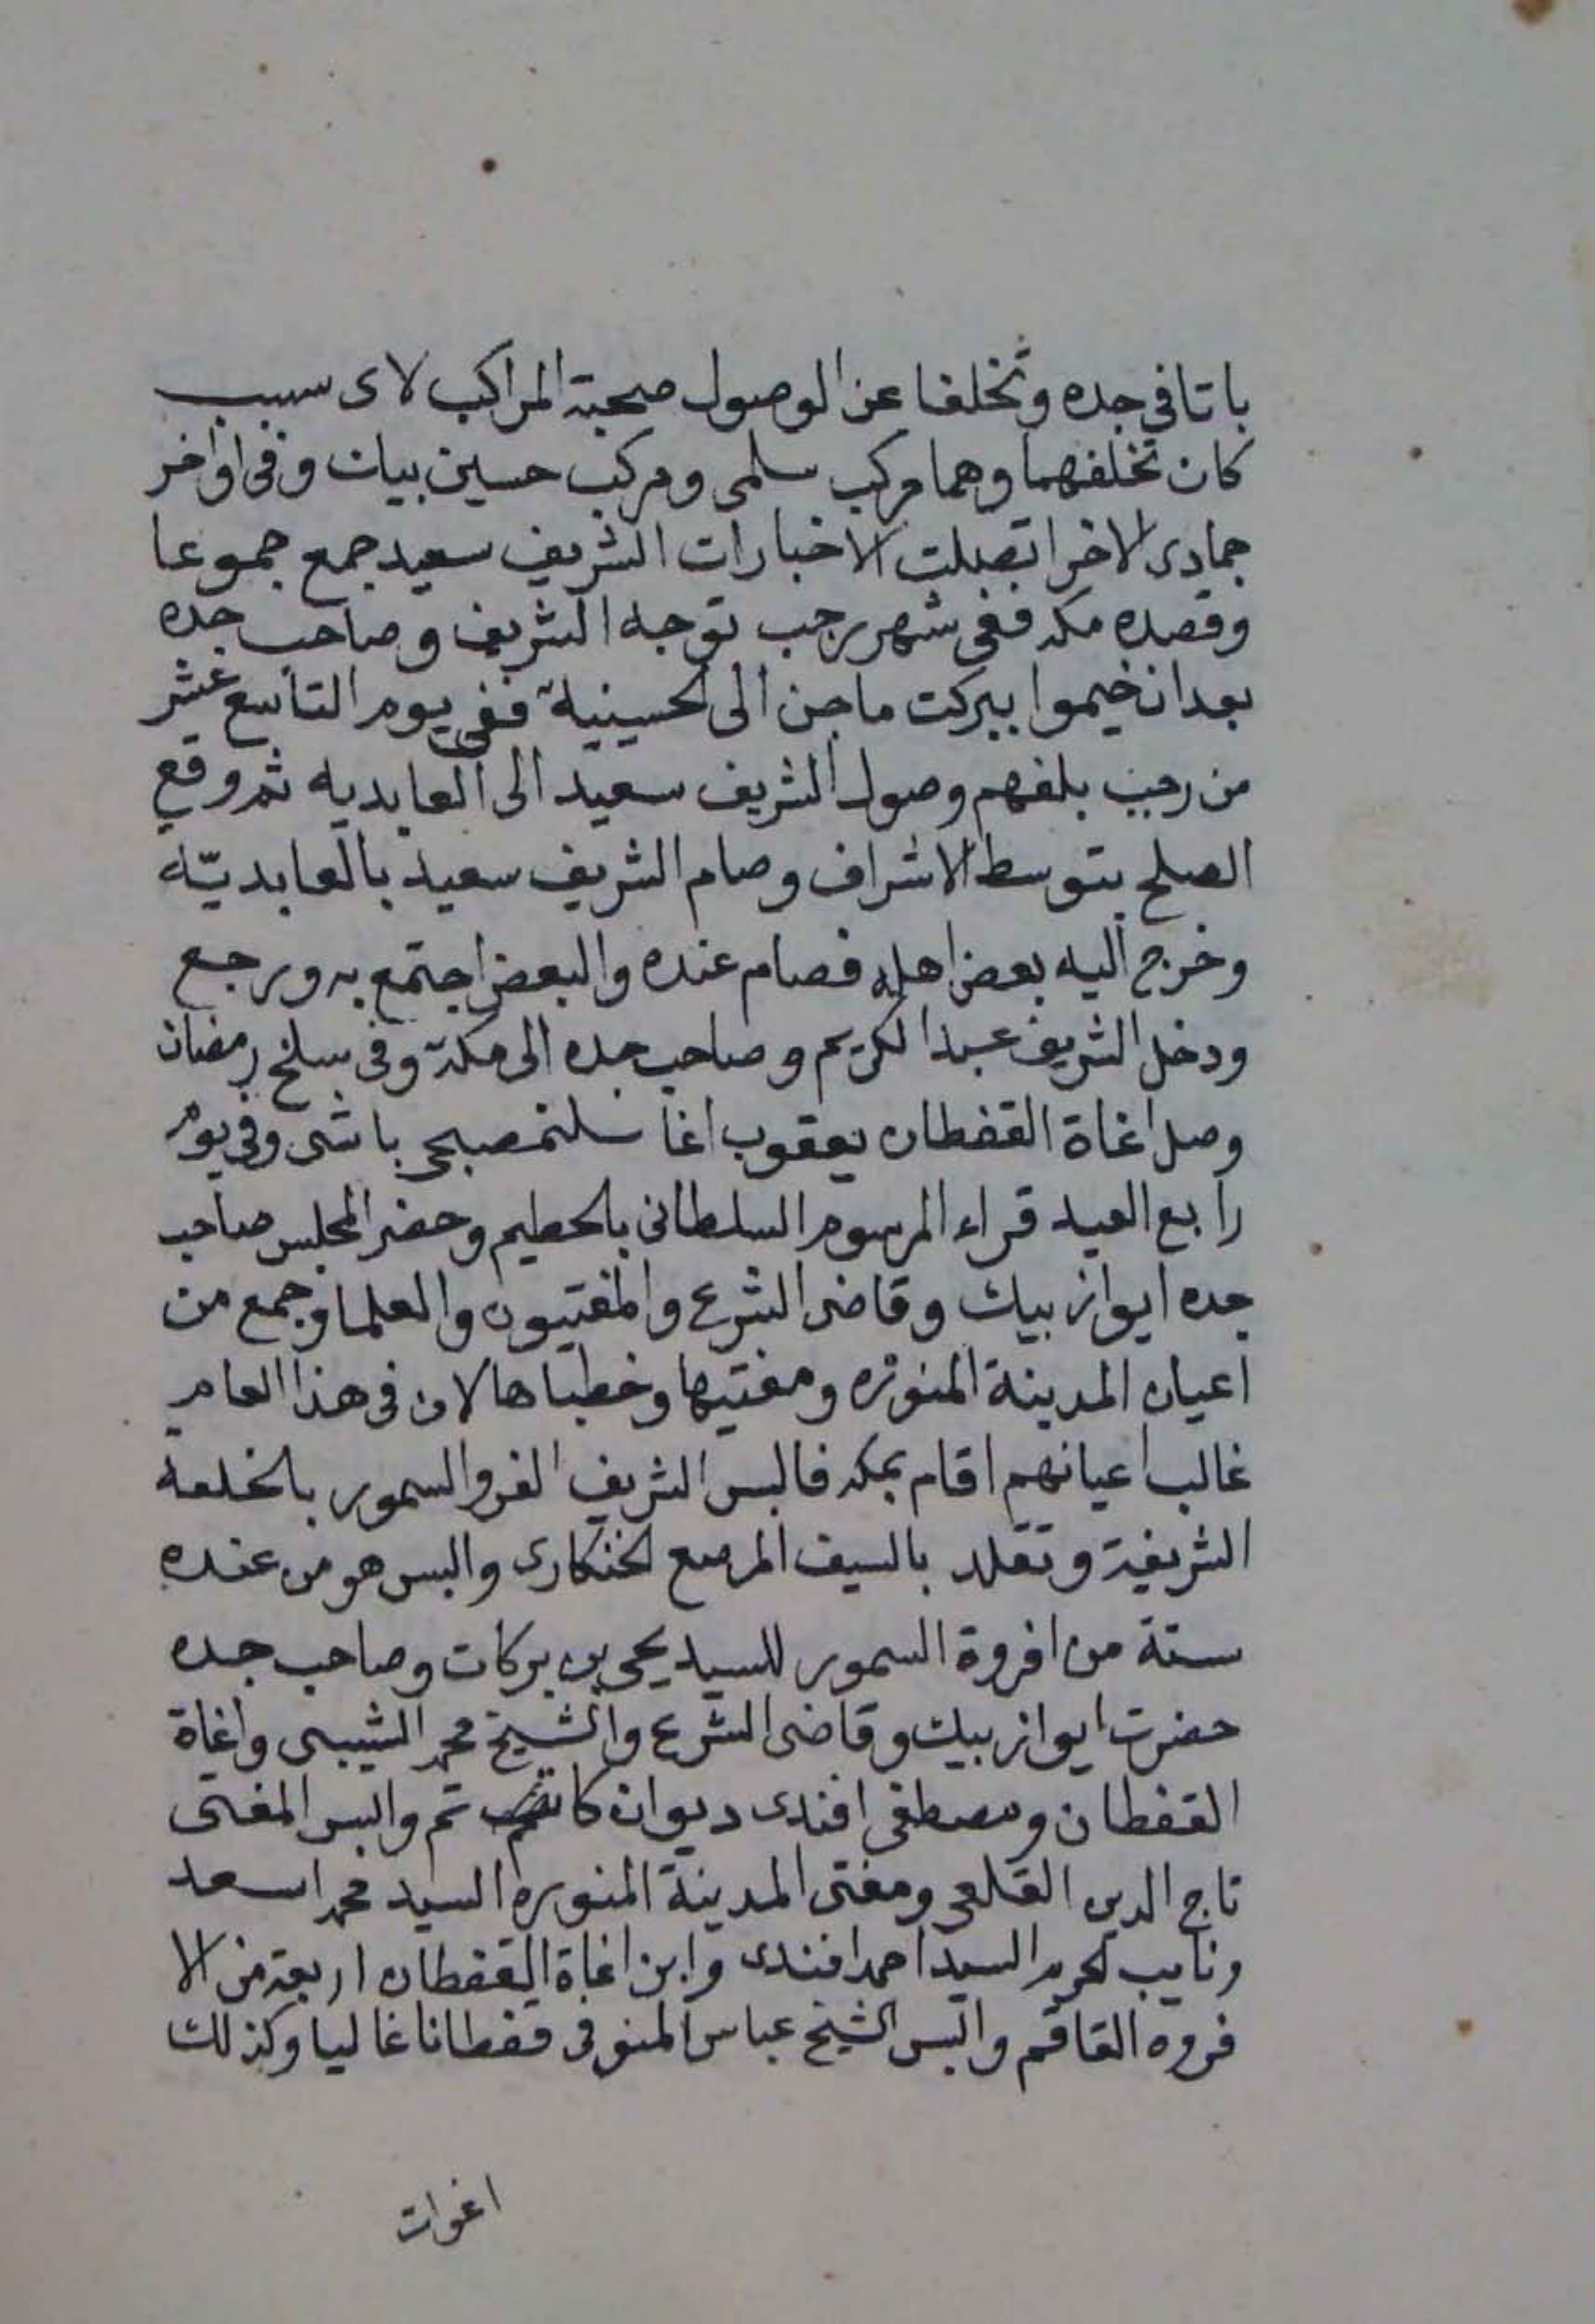 باتا في جده وتخلفا عن الوصول صحبة المراكب لاى سبب
كان تخلفهما وهما مركب سلمى ومركب حسين بيات وفى اواخر
جمادى الاخر اتصلت الاخبارات الشريف سعيد جمع جموعا
وقصده مكه ففى شهر رجب توجه الشريف وصاحب جده
بعد ان خيموا ببركت ماجن الى الحسينية ففى يوم التاسع عشر
من رجب بلغهم وصول الشريف سعيد الى العابديه ثم وقع
الصلح بتوسط الاشراف وصام الشريف سعيد بالعابديّه
وخرج اليه بعض اهله فصام عنده والبعض اجتمع به ورجع
ودخل الشريف عبد الكريم وصاحب جده الى مكة وفى سلخ رمضان
وصل اغاة القفطان يعقوب اغا باشى وفى يوم
رابع العيد قراء المرسوم السلطانى بالحطيم وحضر المجلس صاحب
جده ايواز بيك وقاضى الشرع والمفتيون والعلما وجمع من
اعيان المدينة المنوره ومفتيها وخطباها لان فى هذا العام
غالب اعيانهم اقام بمكه فالبس الشريف الفرو السمور بالخلعة
الشريفة وتقلد بالسيف المرصع الخنكارى والبس هو من عنده
ستة من افروة السمور للسيد يحى بن بركات وصاحب جده
حضرت ايواز بيك وقاضى الشرع والشيخ محمد الشيبى واغاة
القفطان ومصطفى افندى ديوان كاتب ثم والبس المفتى
تاج الدين القلعى ومفتى المدينة المنوره السيد محمد اسعد
ونايب الحرم السيد احمد افندى وابن اغاة القفطان اربعة من الا
فروه القاقم والبس الشيخ عباس المنوفى قفطانا غاليا وكذلك
اغوات